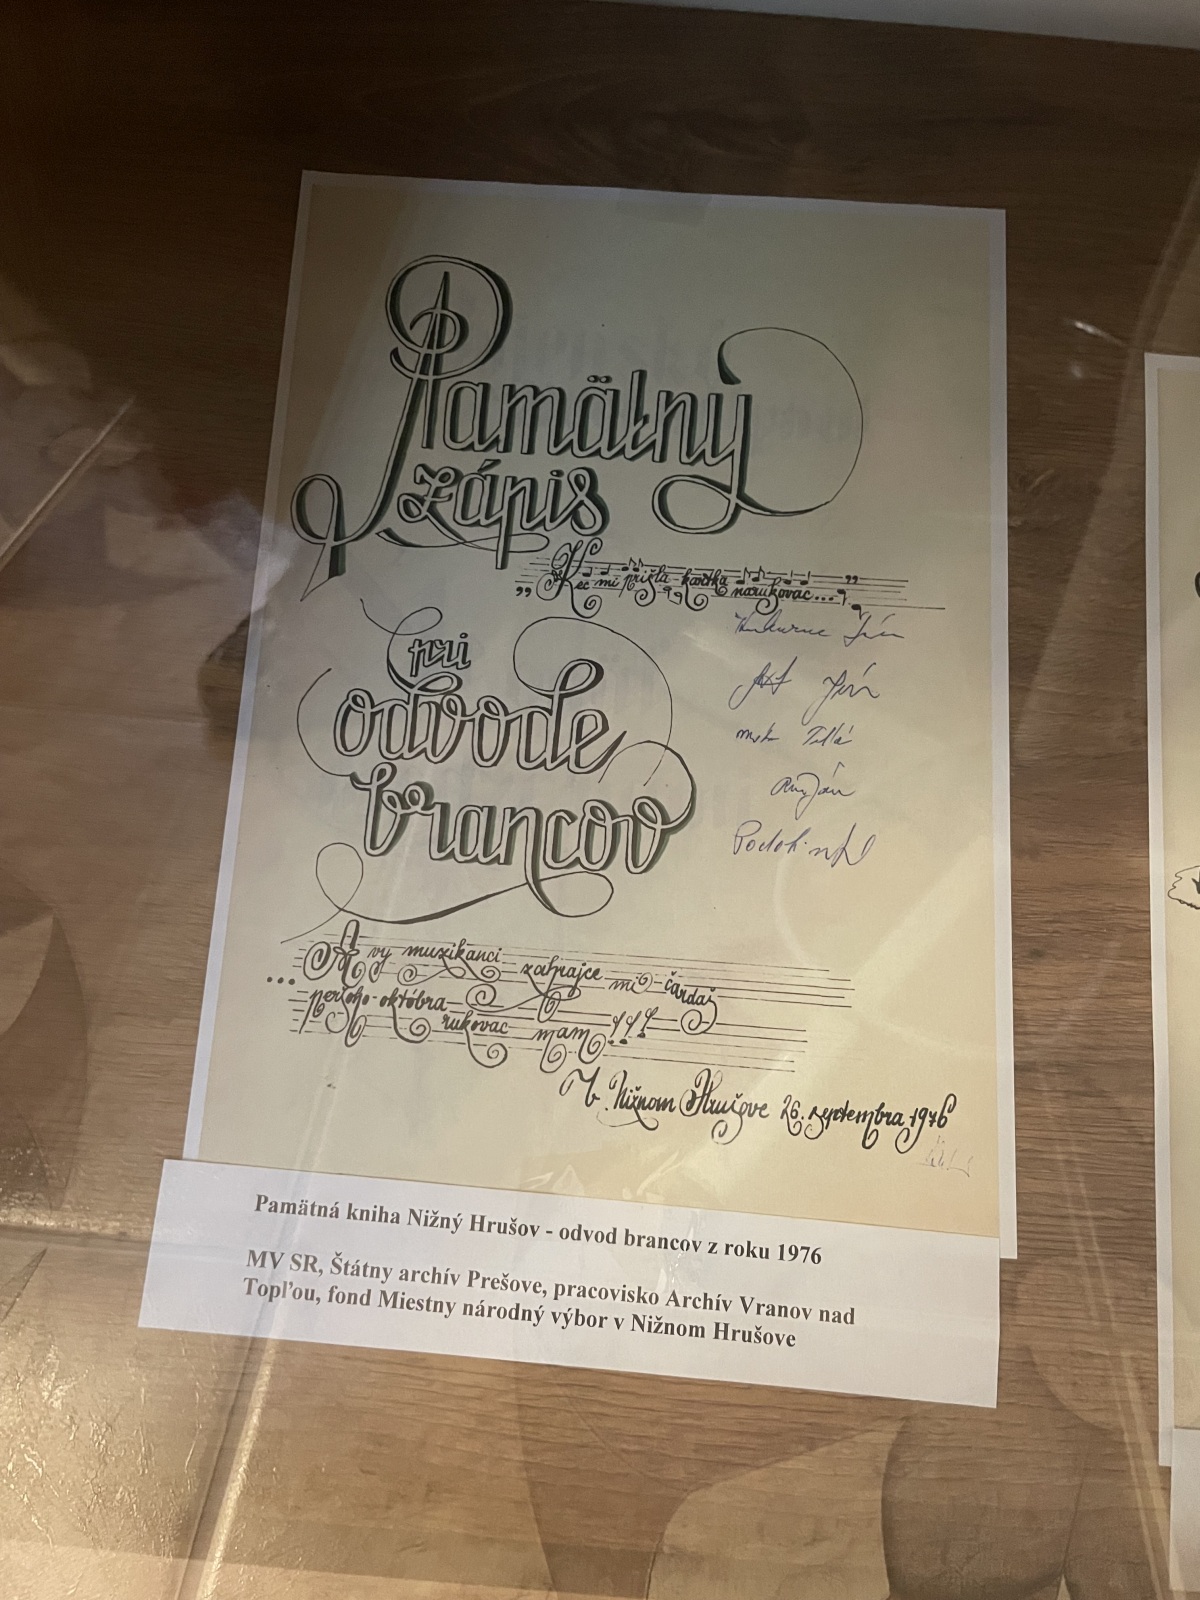 Pamätný
zápis
„Keč mi prišla kartka narukovac..."
pri
odvode
brancov
Ján
Ján
Ján
... A vy muzikanci zahrajce mi čardaš
peršoho októbra
rukovac mam!!!
V Nižnom Hrušove 26. septembra 1976
Pamätná kniha Nižný Hrušov - odvod brancov z roku 1976
MV SR, Štátny archív Prešove, pracovisko Archív Vranov nad
Topľou, fond Miestny národný výbor v Nižnom Hrušove